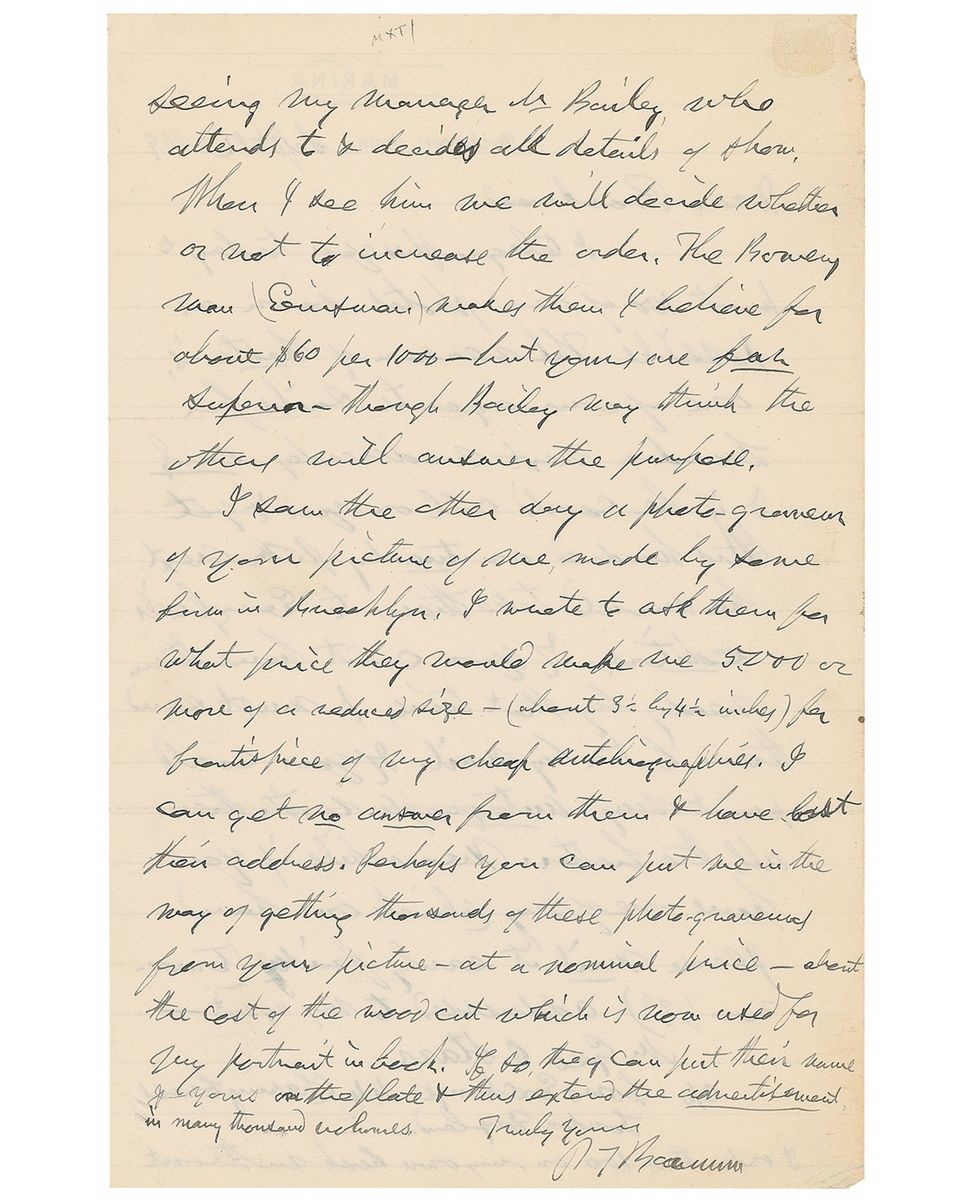 seeing my manager Mr Bailey, who
attends to & decides all details of show.
When I see him we will decide whether
or not to increase the order. The Bowery
man (Eisenman) makes them I believe for
about $60 per 1000 — but yours are far
superior — though Bailey may think the
others will answer the purpose.
I saw the other day a photo-gravure
of your picture of me, made by some
firm in Brooklyn. I wrote to ask them for
what price they would make me 5.000 or
more of a reduced size — (about 3½ by 4½ inches) for
frontispiece of my cheap autobiographies. I
can get no answer from them & have lost
their address. Perhaps you can put me in the
way of getting thousands of these photo-gravures
from your picture — at a nominal price — about
the cost of the wood cut which is now used for
my portrait in book. If so, they can put their name
& yours on the plate & thus extend the advertisement
in many thousand volumes.
Truly Yours
P T Barnum